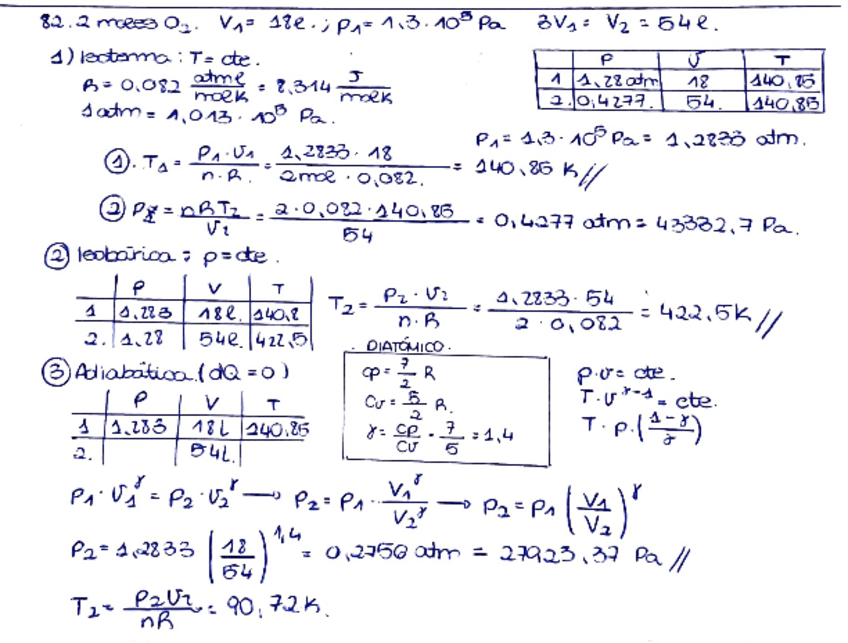 82. 2 moles O₂. V₁ = 18l. ; P₁ = 1,3 · 10⁵ Pa 3V₁ = V₂ = 54l.
1) Isoterma : T = cte.
R = 0,082 atm l / mol K = 8,314 J / mol K
1 atm = 1,013 · 10⁵ Pa.
P V T
1 1,28 atm 18 140,85
2. 0,4277. 54. 140,85
P₁ = 1,3 · 10⁵ Pa = 1,2833 atm.
①. T₁ = P₁ · V₁ / n · R. = 1,2833 · 18 / 2 mol · 0,082. = 140,85 K //
② P₂ = nRT₂ / V₂ = 2 · 0,082 · 140,85 / 54 = 0,4277 atm = 43332,7 Pa.
② Isobárica : p = cte.
P V T
1 1,283 18l. 140,8
2. 1,28 54l. 422,5
T₂ = P₂ · V₂ / n · R = 1,2833 · 54 / 2 · 0,082 = 422,5K //
③ Adiabática. (dQ = 0)
P V T
1 1,283 18L 140,85
2. 54L.
· DIATÓMICO ·
cp = 7/2 R
Cv = 5/2 R.
γ = cp / cv = 7/5 = 1,4
p · v = cte.
T · v^γ-1 = cte.
T · p · (1-γ / γ)
P₁ · V₁^γ = P₂ · V₂^γ → P₂ = P₁ · V₁^γ / V₂^γ → P₂ = P₁ (V₁ / V₂)^γ
P₂ = 1,2833 (18 / 54)^1,4 = 0,2756 atm = 27923,37 Pa //
T₂ = P₂V₂ / nR = 90,72K.